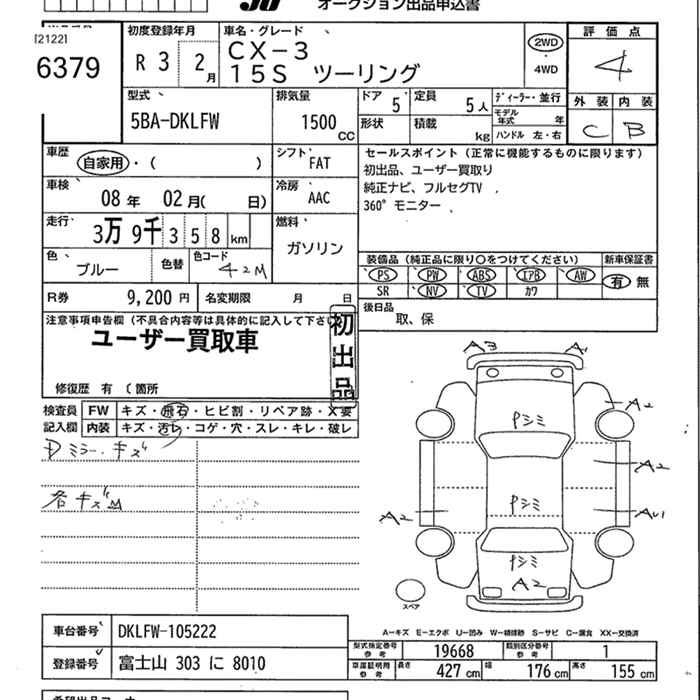 オークション出品申込書
[2122]
6379
初度登録年月
R 3 2月
車名・グレード
CX-3
15S ツーリング
2WD
4WD
評価点
4
外装 内装
C B
型式
5BA-DKLFW
排気量
1500 CC
ドア 5
定員 5人
形状
積載 kg
ディーラー・並行
モデル年式 年
ハンドル 左・右
車歴 自家用・( )
シフト FAT
車検 08年 02月( 日)
冷房 AAC
走行 3万 9千 3 5 8 km
燃料 ガソリン
色 ブルー
色替
色コード 42M
R券 9,200円
名変期限 月 日
セールスポイント (正常に機能するものに限ります)
初出品、ユーザー買取り
純正ナビ、フルセグTV
360°モニター
装備品 (純正品に限り○をつけてください)
新車保証書
PS PW ABS エアB AW
SR NV TV カワ
有 無
後日品
取、保
注意事項申告欄 (不具合内容等は具体的に記入して下さい)
ユーザー買取車
初出品
修復歴 有 (箇所
検査員記入欄
FW キズ・飛石・ヒビ割・リペア跡・X要
内装 キズ・汚レ・コゲ・穴・スレ・キレ・破レ
Dミラーキズ
各キズ
A3 A1
Pシミ
A2
A2
Pシミ
A2
Pシミ
A2
スペア
A-キズ E-エクボ U-凹み W-補修跡 S-サビ C-腐食 XX-交換済
車台番号 DKLFW-105222
登録番号 富士山 303 に 8010
型式指定番号 参考 19668
類別区分番号 参考 1
車庫証明用 参考 長さ 427 cm 幅 176 cm 高さ 155 cm